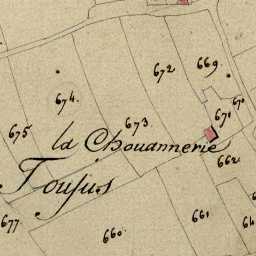 669
672
674
670
671
673
675
la Chouannerie
662
Toufus
677
661
660